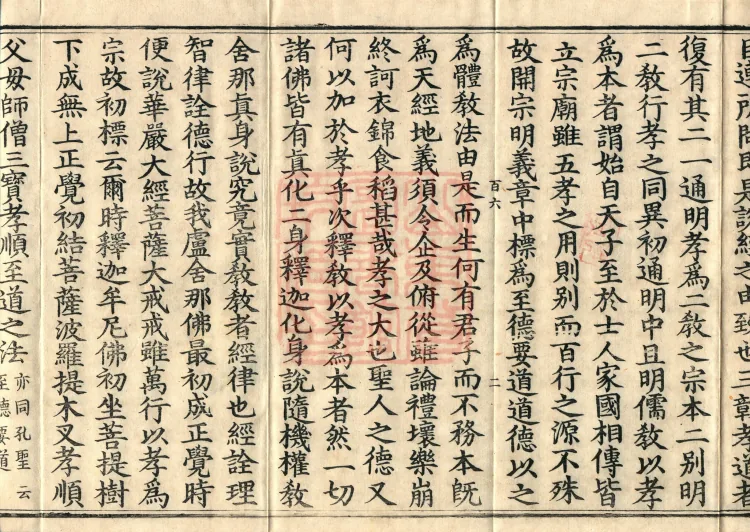 復有其二一通明孝為二教之宗本二別明
二教行孝之同異初通明中且明儒教以孝
為本者謂始自天子至於士人家國相傳皆
立宗廟雖五孝之用則別而百行之源不殊
故開宗明義章中標為至德要道道德以之
百六
二
為體教法由是而生何有君子而不務本既
為天經地義須令企及俯從雖論禮壞樂崩
終訶衣錦食稻甚哉孝之大也聖人之德又
何以加於孝乎次釋教以孝為本者然一切
諸佛皆有真化二身釋迦化身說隨機權教
舍那真身說究竟實教教者經律也經詮理
智律詮德行故我盧舍那佛最初成正覺時
便說華嚴大經菩薩大戒戒雖萬行以孝為
宗故初標云爾時釋迦牟尼佛初坐菩提樹
下成無上正覺初結菩薩波羅提木叉孝順
父母師僧三寶孝順至道之法
亦同孔聖云
至德要道